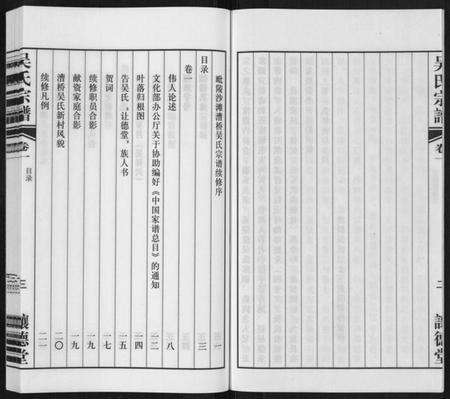 吴氏宗譜
卷一
二
讓德堂
毗陵沙滩漕桥吴氏宗谱续修序 一
目录 三
卷一
伟人论述 八
文化部办公厅关于协助编好《中国家谱总目》的通知 一二
叶落归根图 一四
告吴氏，让德堂，族人书 一五
贺词 一七
续修职员合影 一九
献资家庭合影 一九
漕桥吴氏新村风貌 二〇
续修凡例 二一
吴氏宗譜
卷一
目录
三
讓德堂